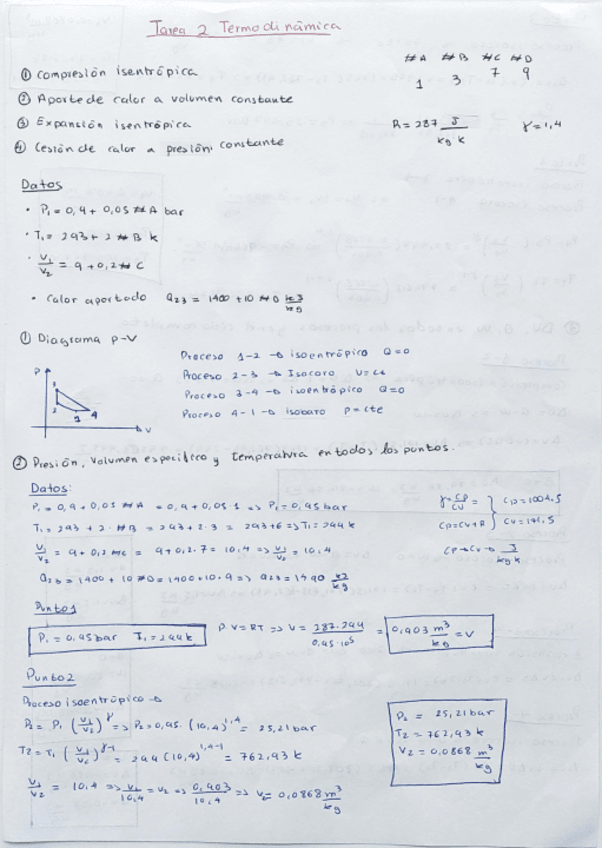 Tarea 2 Termodinámica
#A #B #C #D
1 3 7 9
① Compresión isentrópica
② Aporte de calor a volumen constante
③ Expansión isentrópica
④ Cesión de calor a presión constante
R = 287 J/kg·k γ = 1,4
Datos
• P₁ = 0,9 + 0,05 #A bar
• T₁ = 293 + 2 #B k
• V₁/V₂ = 9 + 0,2 #C
• Calor aportado q₂₃ = 1400 + 10 #D kJ/kg
① Diagrama p-V
P
3
2
1 4
V
Proceso 1-2 → isoentrópico Q=0
Proceso 2-3 → Isocoro V=cte
Proceso 3-4 → isoentrópico Q=0
Proceso 4-1 → isobaro p=cte
② Presión, Volumen específico y temperatura en todos los puntos.
Datos:
P₁ = 0,9 + 0,05 #A = 0,9 + 0,05·1 => P₁ = 0,95 bar
T₁ = 293 + 2·#B = 293 + 2·3 = 293+6 => T₁ = 299 k
V₁/V₂ = 9 + 0,2 #C = 9 + 0,2·7 = 10,4 => V₁/V₂ = 10,4
q₂₃ = 1400 + 10 #D = 1400 + 10·9 => q₂₃ = 1490 kJ/kg
γ = Cp/Cv =
Cp = Cv + R
Cp = 1004,5
Cv = 717,5
Cp → Cv → J/kg k
Punto 1
P₁ = 0,95 bar T₁ = 299 k
P·V = RT => V = 287·299 / 0,95·10⁵ = 0,903 m³/kg = V
Punto 2
Proceso isoentrópico →
P₂ = P₁ (V₁/V₂)^γ => P₂ = 0,95·(10,4)^1,4 = 25,21 bar
T₂ = T₁ (V₁/V₂)^γ-1 = 299 (10,4)^1,4-1 = 762,93 k
V₁/V₂ = 10,4 => V₁/10,4 = V₂ => 0,903/10,4 => V₂ = 0,0868 m³/kg
P₂ = 25,21 bar
T₂ = 762,93 k
V₂ = 0,0868 m³/kg